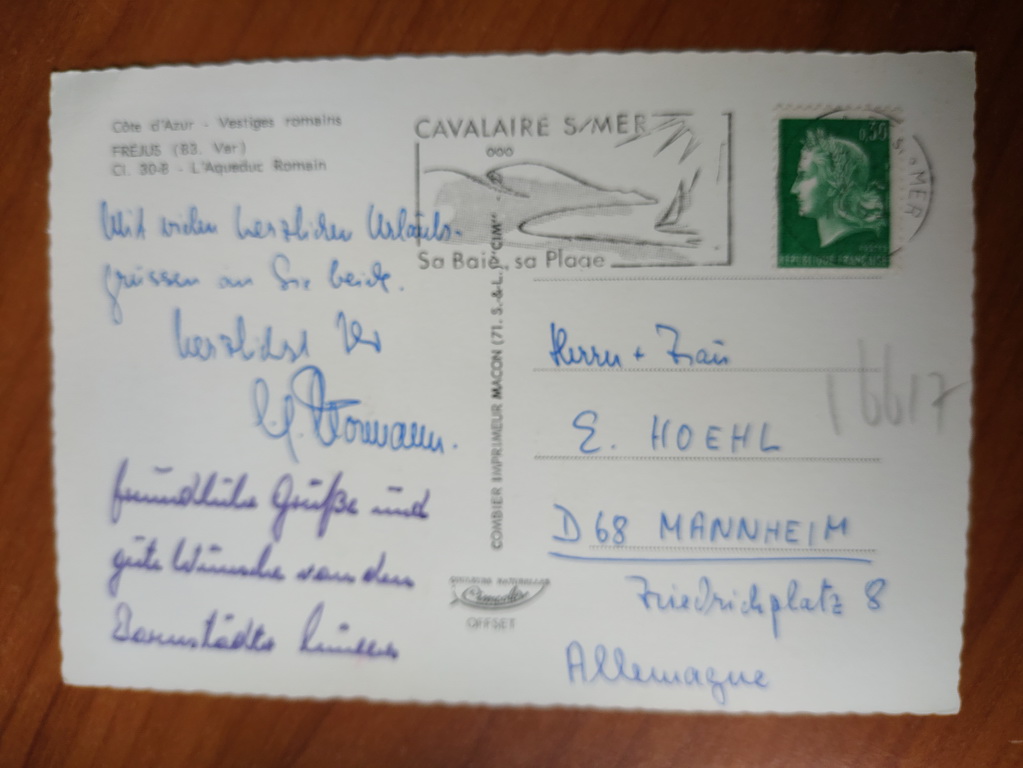 Côte d'Azur - Vestiges romains
FRÉJUS (83. Var)
Cl. 30-B - L'Aqueduc Romain
CAVALAIRE S/MER
Sa Baie, sa Plage
0,30
S. MER
REPUBLIQUE FRANÇAISE
Mit vielen herzlichen Urlaubs-
grüssen an Sie beide.
herzlichst Ihr
freundliche Grüße und
gute Wünsche von den
Darmstädter
COMBIER IMPRIMEUR MACON (71. S.-&-L.) "CIM"
Herrn + Frau
E. HOEHL
D 68 MANNHEIM
Friedrichplatz 8
Allemagne
16617
OFFSET